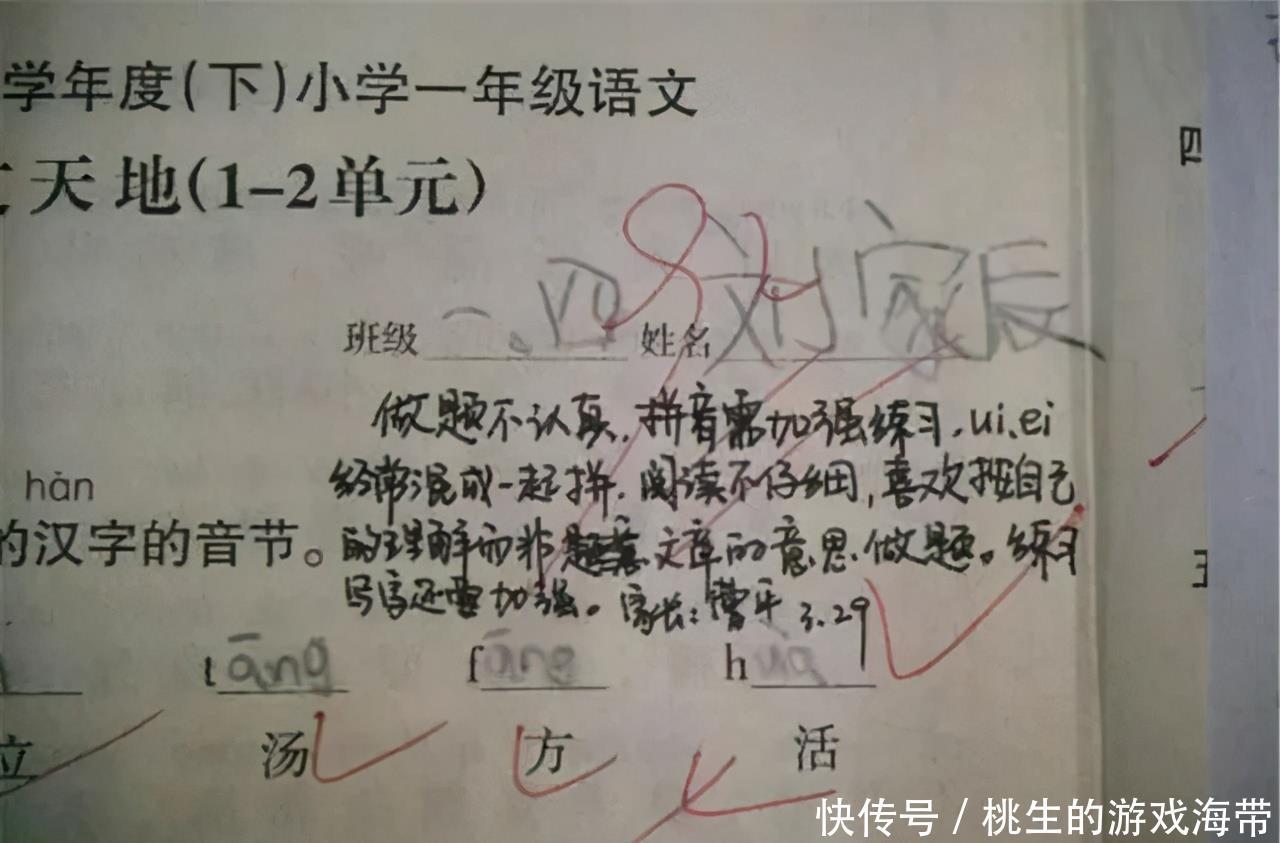 学年度(下)小学一年级语文
天地(1-2单元)
四
班级 一.四 姓名 刘家辰
做题不认真,拼音需加强练习,ui、ei
经常混成一起拼,阅读不仔细,喜欢按自己
hàn
的汉字的音节。
的理解而非文章的意思做题。练习
写字还需加强。家长:曹平 3.29
tāng fāng h
立 汤 方 活
快传号/桃生的游戏海带